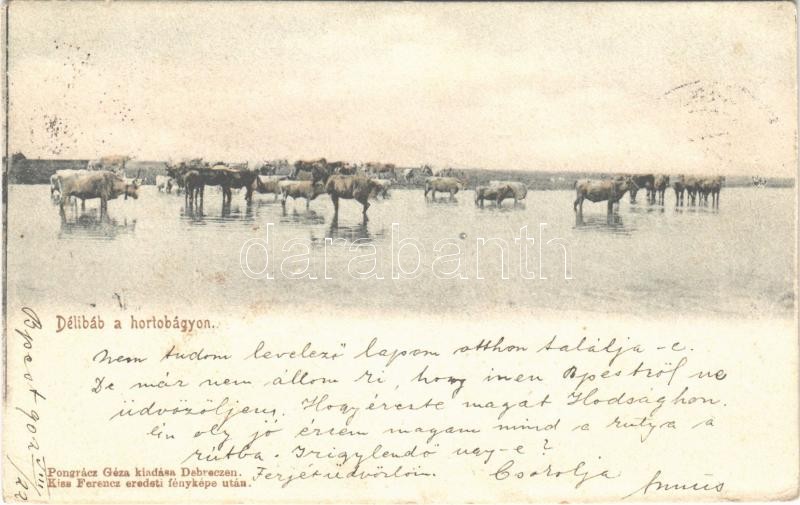 Délibáb a hortobágyon.
darabanth
Nem tudom levelező lapom otthon találja-e.
De már nem állom ki, hogy innen Bpestről ne
üdvözöljem. Hogy érezte magát Hodsághon.
Én oly jó érzem magam mind a kutya a
kútba. Irigylendő ugy-e?
Férjét üdvözlöm. Csókolja
Bpest 902 VIII 22
Pongrácz Géza kiadása Debreczen.
Kiss Ferencz eredeti fényképe után.